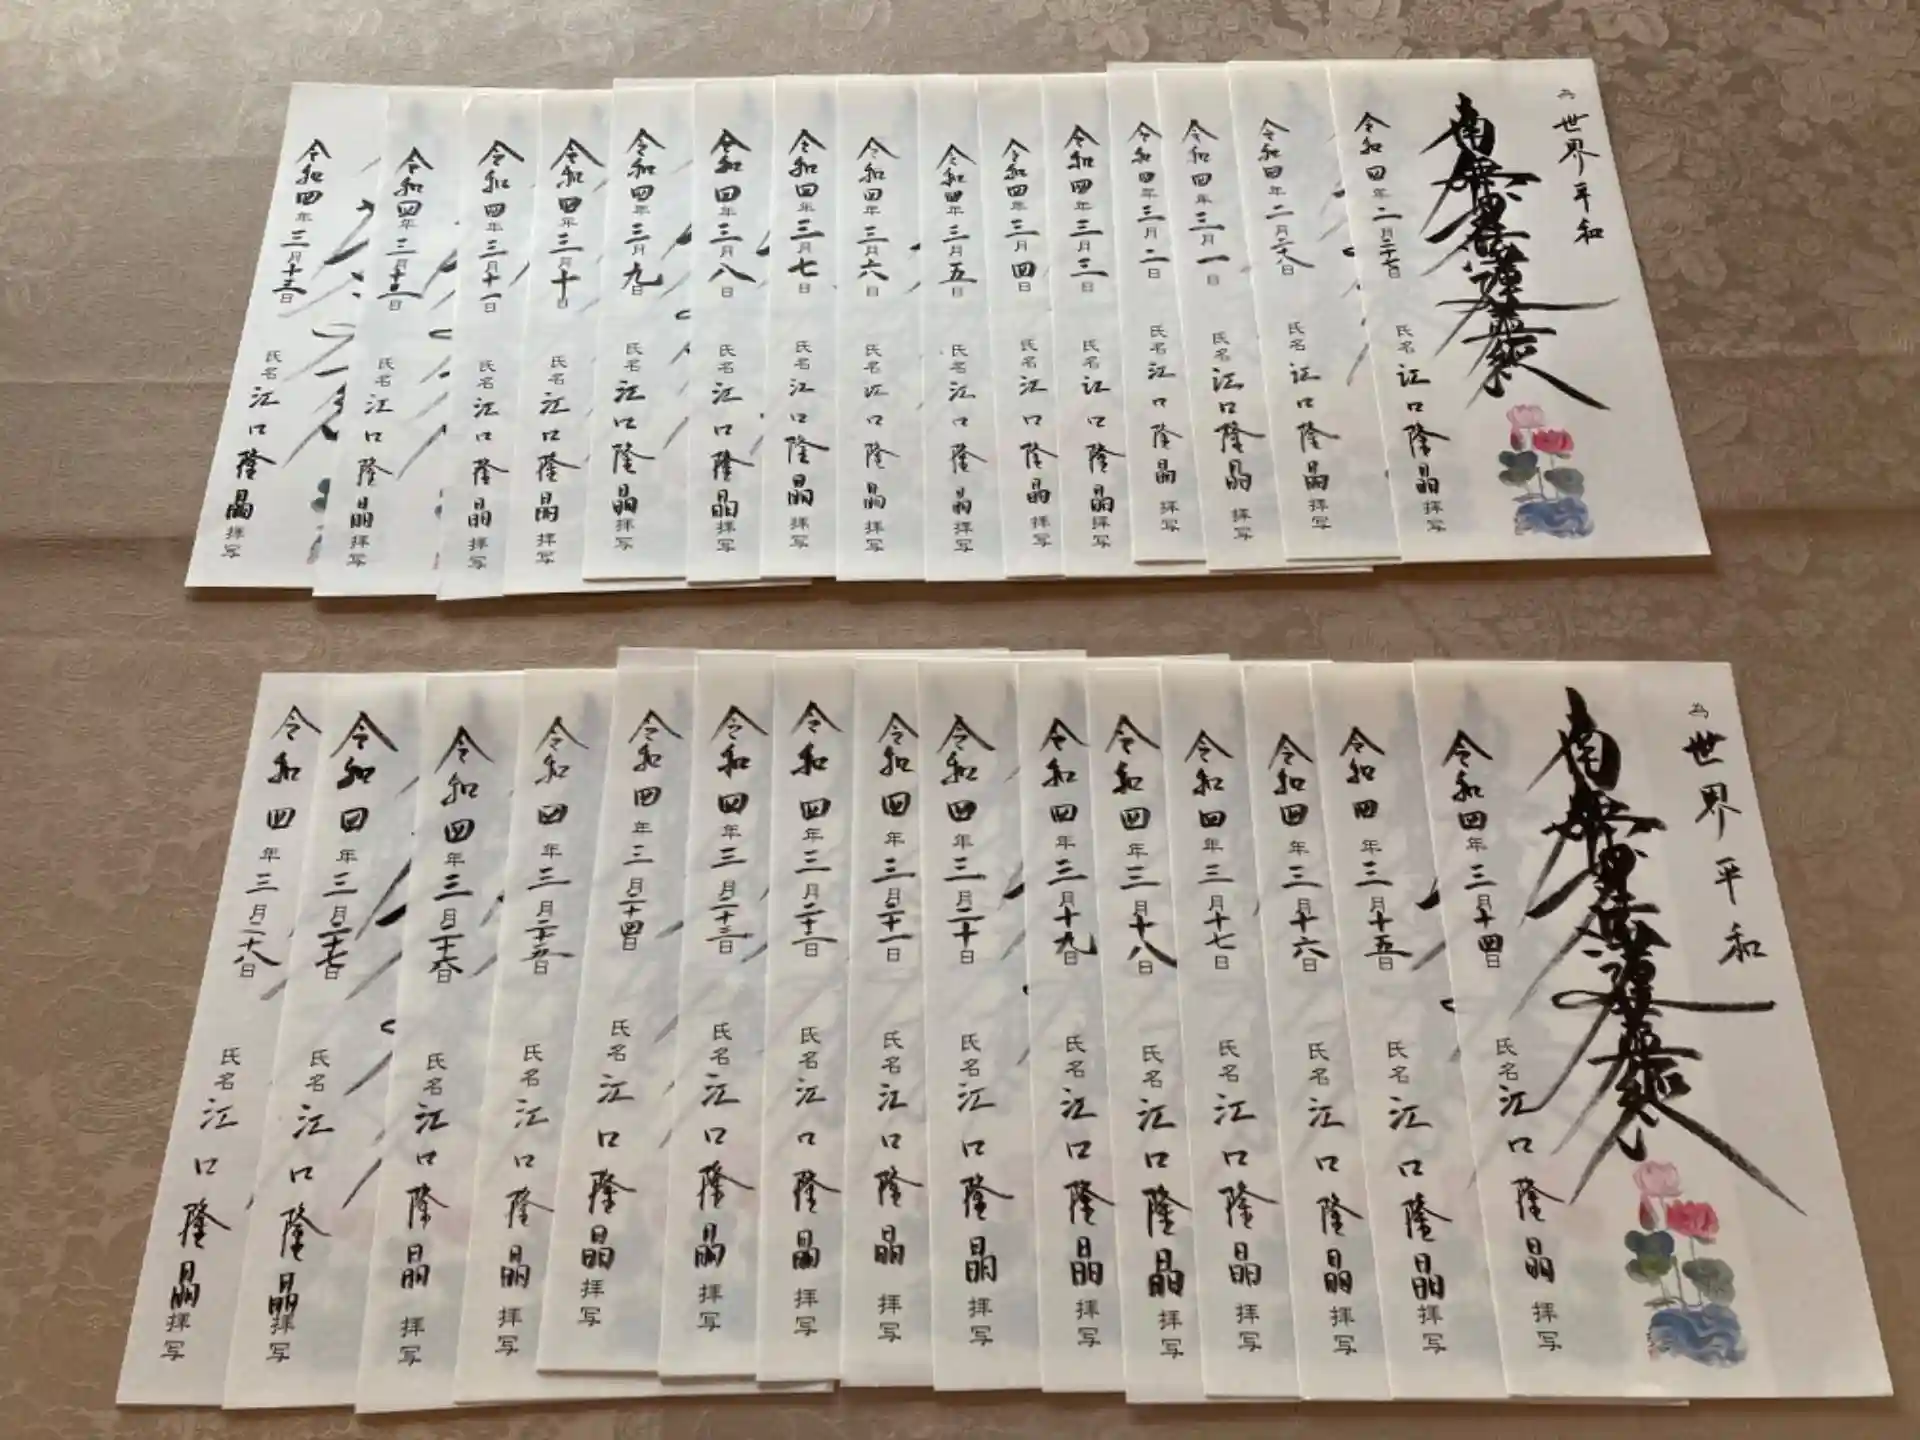 為 世界平和
南無妙法蓮華経
令和四年二月二十七日
氏名 江口隆晶 拝写
令和四年二月二十八日
氏名 江口隆晶 拝写
令和四年三月一日
氏名 江口隆晶 拝写
令和四年三月二日
氏名 江口隆晶 拝写
令和四年三月三日
氏名 江口隆晶 拝写
令和四年三月四日
氏名 江口隆晶 拝写
令和四年三月五日
氏名 江口隆晶 拝写
令和四年三月六日
氏名 江口隆晶 拝写
令和四年三月七日
氏名 江口隆晶 拝写
令和四年三月八日
氏名 江口隆晶 拝写
令和四年三月九日
氏名 江口隆晶 拝写
令和四年三月十日
氏名 江口隆晶 拝写
令和四年三月十一日
氏名 江口隆晶 拝写
令和四年三月十二日
氏名 江口隆晶 拝写
令和四年三月十三日
氏名 江口隆晶 拝写
為 世界平和
南無妙法蓮華経
令和四年三月十四日
氏名 江口隆晶 拝写
令和四年三月十五日
氏名 江口隆晶 拝写
令和四年三月十六日
氏名 江口隆晶 拝写
令和四年三月十七日
氏名 江口隆晶 拝写
令和四年三月十八日
氏名 江口隆晶 拝写
令和四年三月十九日
氏名 江口隆晶 拝写
令和四年三月二十日
氏名 江口隆晶 拝写
令和四年三月二十一日
氏名 江口隆晶 拝写
令和四年三月二十二日
氏名 江口隆晶 拝写
令和四年三月二十三日
氏名 江口隆晶 拝写
令和四年三月二十四日
氏名 江口隆晶 拝写
令和四年三月二十五日
氏名 江口隆晶 拝写
令和四年三月二十六日
氏名 江口隆晶 拝写
令和四年三月二十七日
氏名 江口隆晶 拝写
令和四年三月二十八日
氏名 江口隆晶 拝写